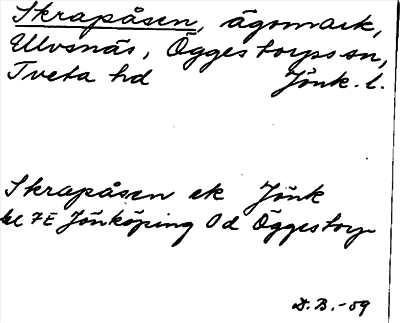 Skrapåsen, ägomark,
Ulvsnäs, Öggestorps sn,
Tveta hd Jönk. l.
Skrapåsen ek Jönk
bl 7E Jönköping 0d Öggestorp
D.B.-59